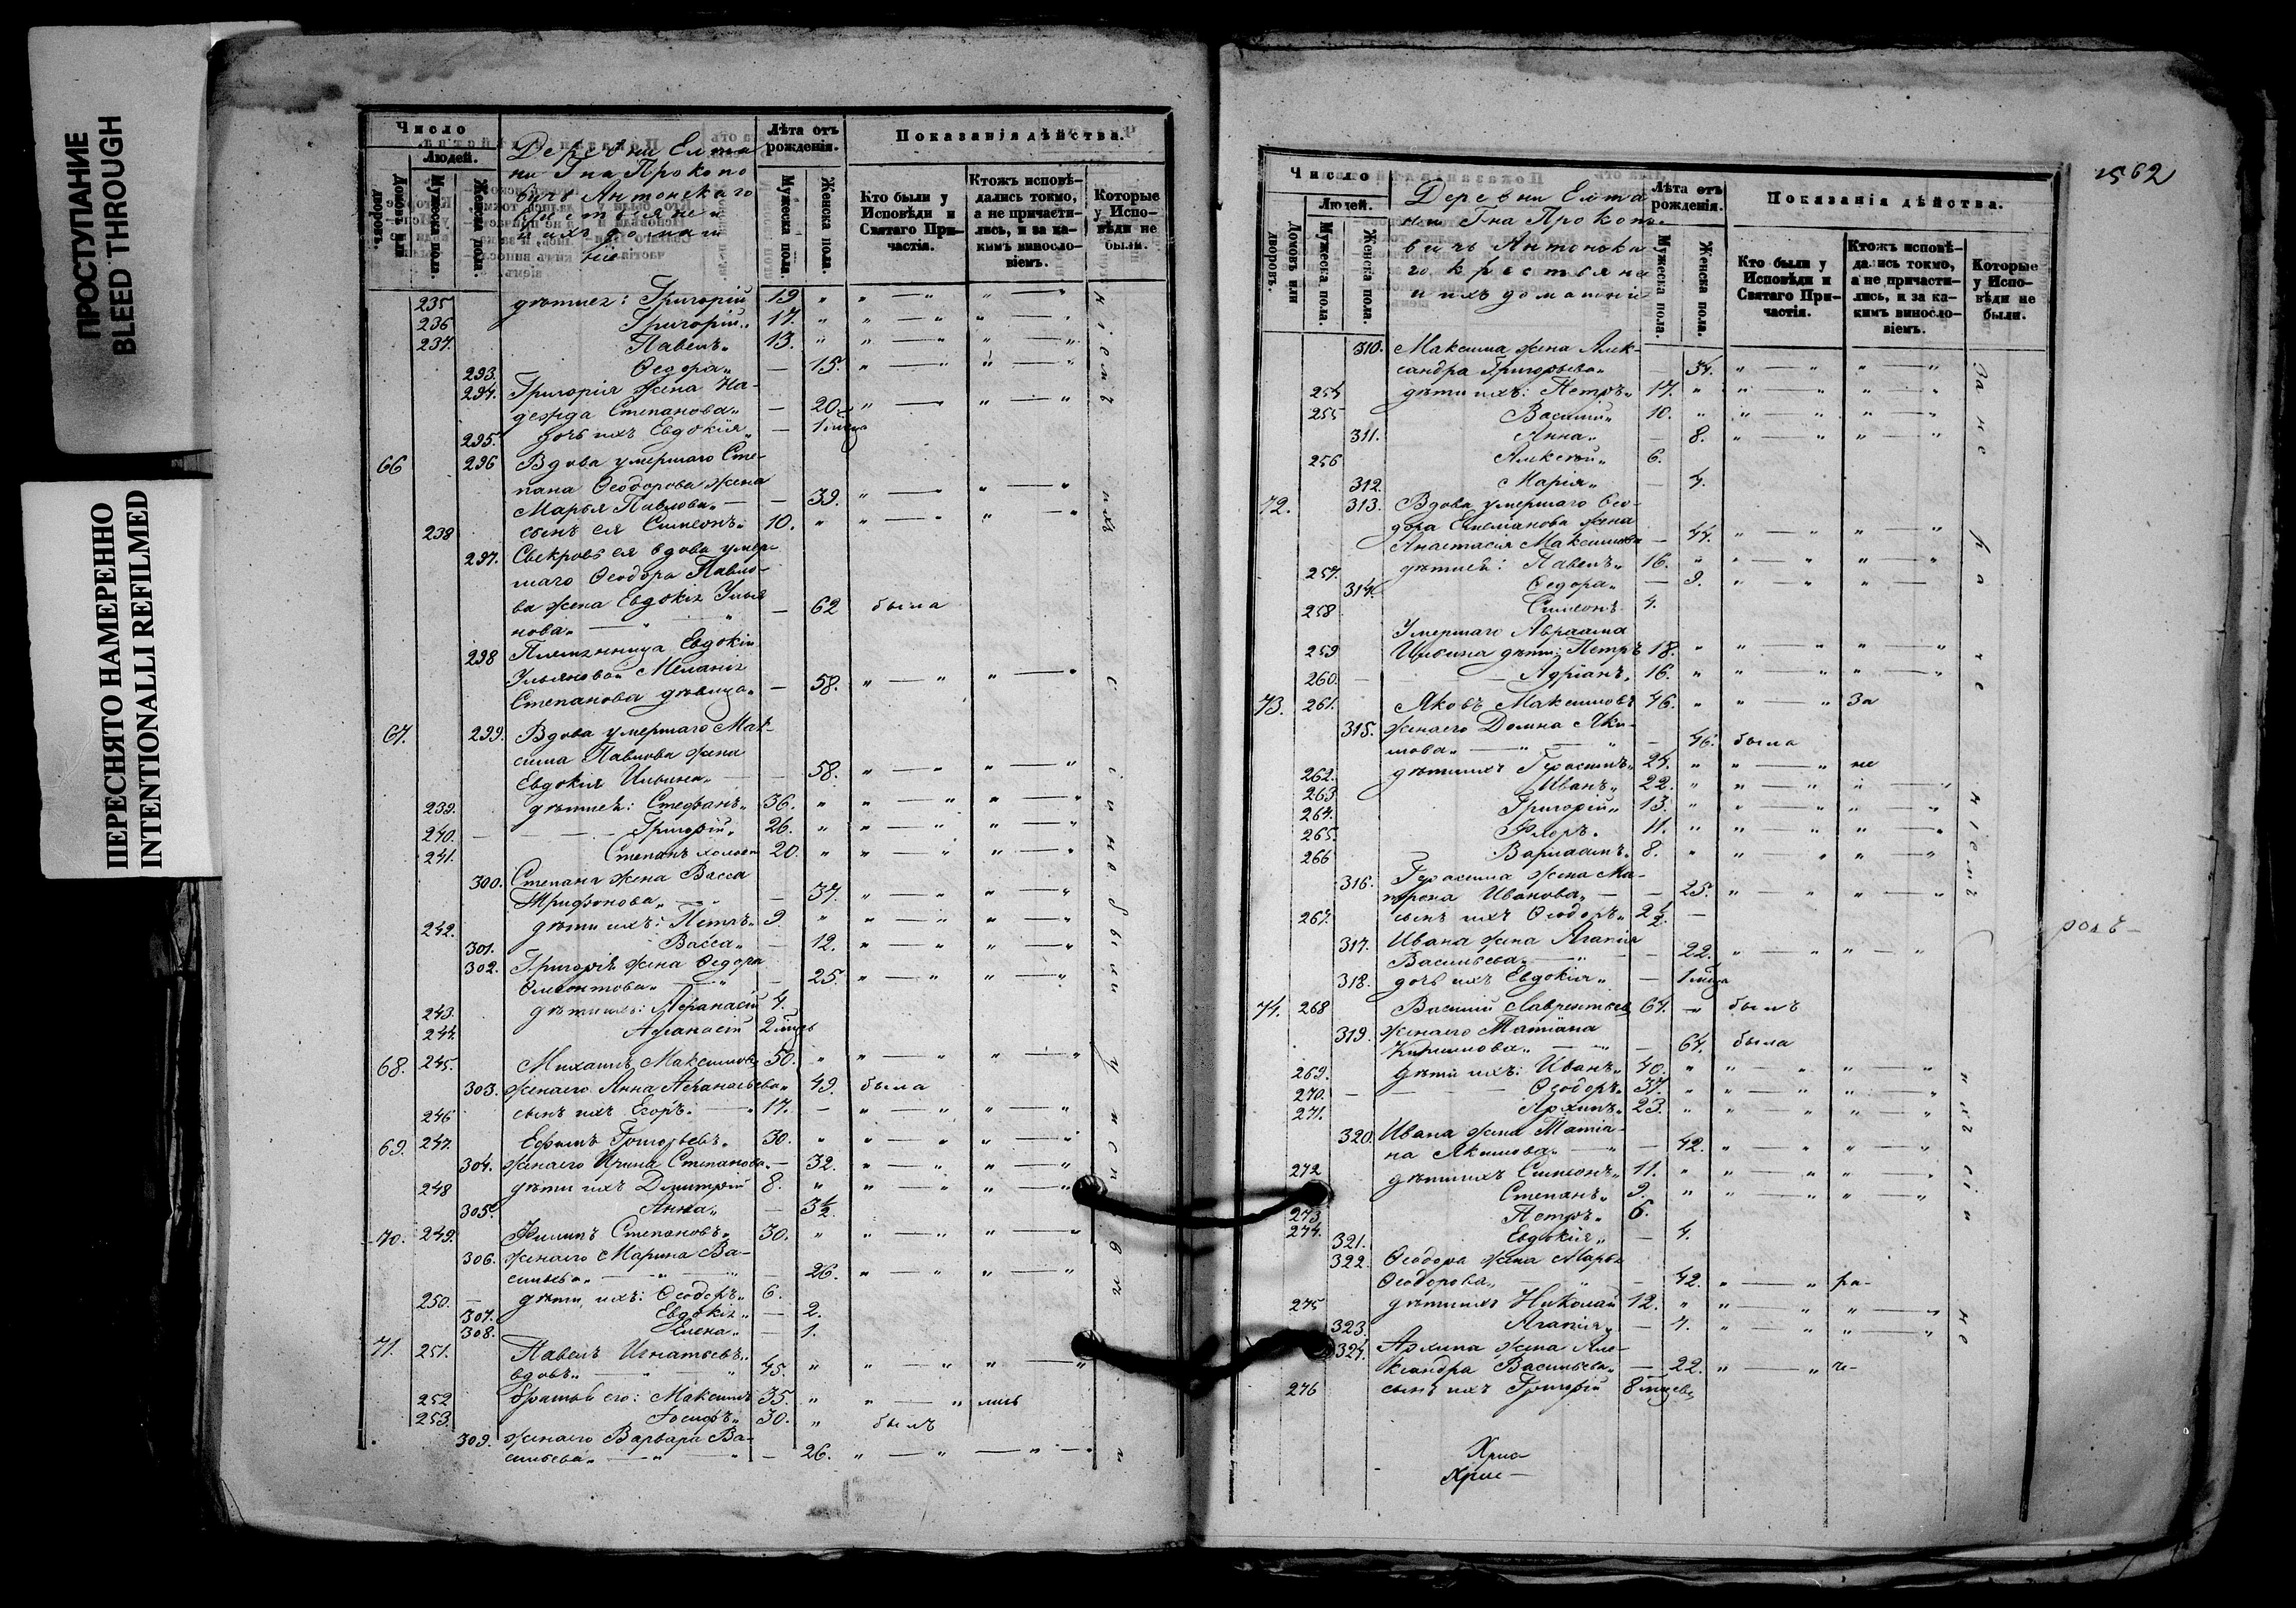 ПРОСТУПАНИЕ
BLEED THROUGH
ПЕРЕСНЯТО НАМЕРЕННО
INTENTIONALLI REFILMED
Число
Людей.
Домовъ или дворовъ.
Мужеска пола.
Женска пола.
Деревни Елта
ни Гна Прокопо
вичъ Антонскаго
Крестьяне и
ихъ домаш
ніе
Лѣта отъ рожденія.
Мужеска пола.
Женска пола.
Показанія дѣйства.
Кто были у Исповѣди и Святаго Причастія.
Ктожъ исповѣдались токмо, а не причастились, и за какимъ винословіемъ.
Которые у Исповѣди не были.
235 дѣти ея: Григорій 19 " " — " " — "
236 Григорій " 17. " " — " " — "
237. Павелъ " 13. " " — " " — "
293. Ѳедора " — 15. " — " " — "
294. Григорія жена На-
дежда Степанова " — 20 " — " " — "
295. дочь ихъ Евдокія " — 1
66 296 Вдова умершаго Сте-
пана Ѳеодорова жена
Марья Павлова " — 39. " — " " — "
238 сынъ ея Симеонъ " 10. " " — " " — "
297. Свекровь ея вдова умер-
шаго Ѳеодора Павло-
ва жена Евдокія Улья
нова " — 62 была
298 Племянница Евдокіи
Ульяновой Меланія
Степанова дѣвица " — 58. " — " " — "
67. 299. Вдова умершаго Мак-
сима Павлова жена
Евдокія Ильина " — 58. " — " " — "
239. дѣти ея: Стефанъ " 36. " " — " " — "
240. — Григорій " 26. " " — " " — "
241. Степанъ 20. " " — " " — "
300. Степана жена Васса
Трифонова " — 37. " — " " — "
242. дѣти ихъ: Петръ " 9. " " — " " — "
301. Васса " — 12. " — " " — "
302. Григорія жена Ѳедора
— 25. " — " " — "
243. дѣти ихъ: Аѳанасій 4.
244. Аѳанасій 2
68. 245. Михаилъ Максимовъ 50. " " — " " — "
303. жена его Анна Аѳанасьева " 49. была
246 сынъ ихъ Егоръ. — " 17. — " — " " — "
69. 247. Ефимъ Григорьевъ " 30. " " — " " — "
304. жена его Ирина Степанова " — 32. " — " " — "
248 дѣти ихъ Димитрій 8. " " — " " — "
305. Анна " — 3½
70. 249. Филипъ Степановъ " 30. " " — " " — "
306. жена его Марина Ва-
сильева " — 26. " — " " — "
250. — дѣти ихъ: Ѳеодоръ " 6.
307. Евдокія " — 2.
308. Елена " — 1.
71. 251. Павелъ Игнатьевъ "
вдовъ " 45. " " — " " — "
252 братья его: Максимъ 35. " " — " лись
253. Іосифъ " 30. " былъ
309. жена его Варвара Ва-
сильева " — " — 26. " — " — " —
1562
Число
Людей.
Домовъ или дворовъ.
Мужеска пола.
Женска пола.
Деревни Елта
ни Гна Прокопо
вичъ Антонска
го Крестьяне
и ихъ домашніе
Лѣта отъ рожденія.
Мужеска пола.
Женска пола.
Показанія дѣйства.
Кто были у Исповѣди и Святаго Причастія.
Ктожъ исповѣдались токмо, а не причастились, и за какимъ винословіемъ.
Которые у Исповѣди не были.
310. Максима жена Алек-
сандра Григорьева " — 34. " — " " — "
254 дѣти ихъ: Петръ " 17. " " — " " — "
255 Василій " 10. " " — " " — "
311. Анна " — 8. " — " " — "
256 Алексѣй " 6.
312. Марія " — 4.
72. 313. Вдова умершаго Ѳео-
дора Емеліанова жена
Анастасія Максимова — 44. " — " " — "
257. дѣти ея: Павелъ " 16. " " — " " — "
314. Ѳедора " — 9. " — " " —
258 Симеонъ 4.
Умершаго Авраама
259 Ильина дѣти: Петръ 18. " " — " " — "
260. — Адріанъ " 16. " " — " " — "
73. 261. Яковъ Максимовъ 46. " " — " За
315. жена его Домна Аки-
мова " — " — 46. была
262. дѣти ихъ Герасимъ " 24. " " — " не
263 Иванъ " 22. " " — " " — "
264. Григорій " 13. " " — " " — "
265. Флоръ " 11. " " — " " — "
266 Варлаамъ " 8. " " — " " — "
316. Герасима жена Ма-
трона Иванова " — — 25. " — " " — "
267. сынъ ихъ Ѳеодоръ " 2½. —
317. Ивана жена Агапія
Васильева " — — 22. " — " " — "
318. дочь ихъ Евдокія " — 1
74. 268 Василій Лаврентьевъ 64. — былъ
319. жена его Татіана
Кирилова " — " — 64. была
269. дѣти ихъ: Иванъ " 40. " " — " " — "
270. — Ѳеодоръ " 37. " " — " " — "
271. Архипъ " 23. " " — " " — "
320. Ивана жена Татіа-
на Акимова " — " — 42. " — " " — "
272 дѣти ихъ Симеонъ " 11. " " — " " — "
Степанъ " 9. " " — " " — "
273 Петръ " 6.
274. 321. Евдокія " — 4.
322. Ѳеодора жена Марья
Ѳеодорова " — 42. " — " ра-
275 дѣти ихъ Николай 12. " " — " " — "
323. Агапія " — 7. " — " " — "
324. Архипа жена Але-
ксандра Васильева " — 22. " — " че-
276 сынъ ихъ Григорій 8
Хрис
Хрис—